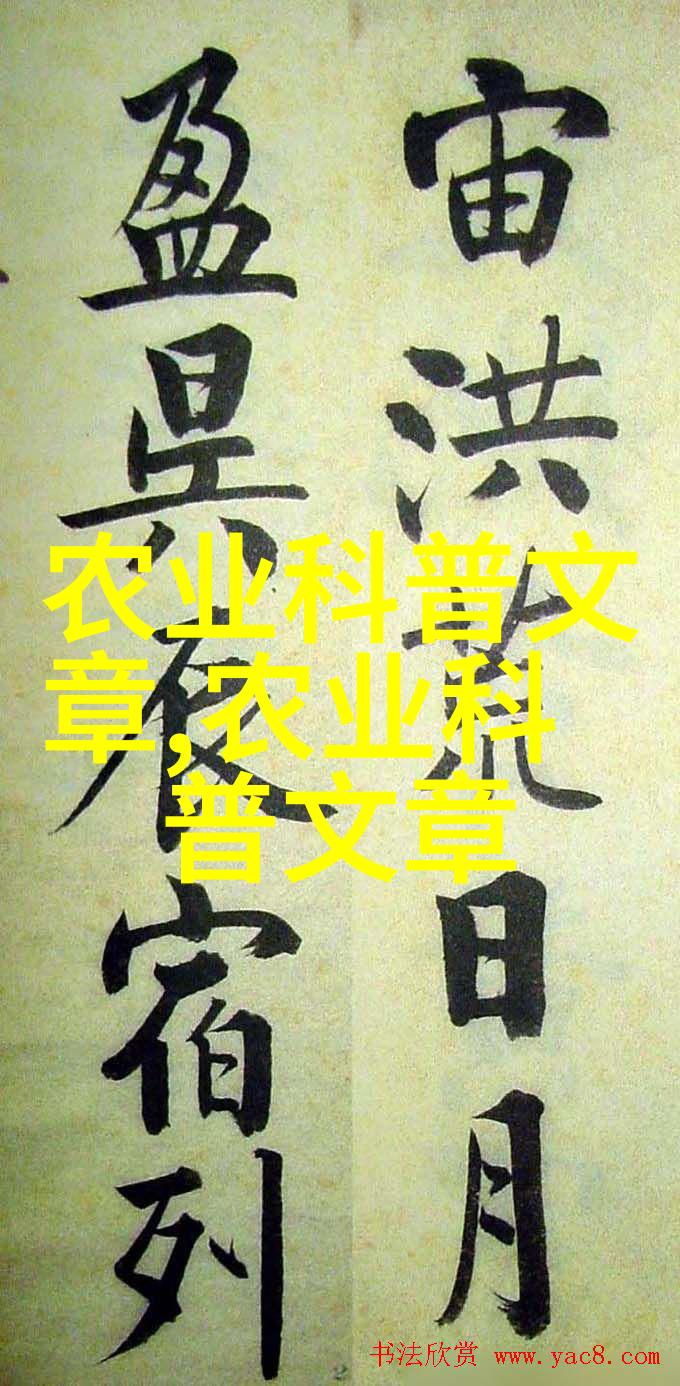 宙洪荒日月
盈昃辰宿列
农业科普文
章,农业科
普文章
书法欣赏 www.yac8.com